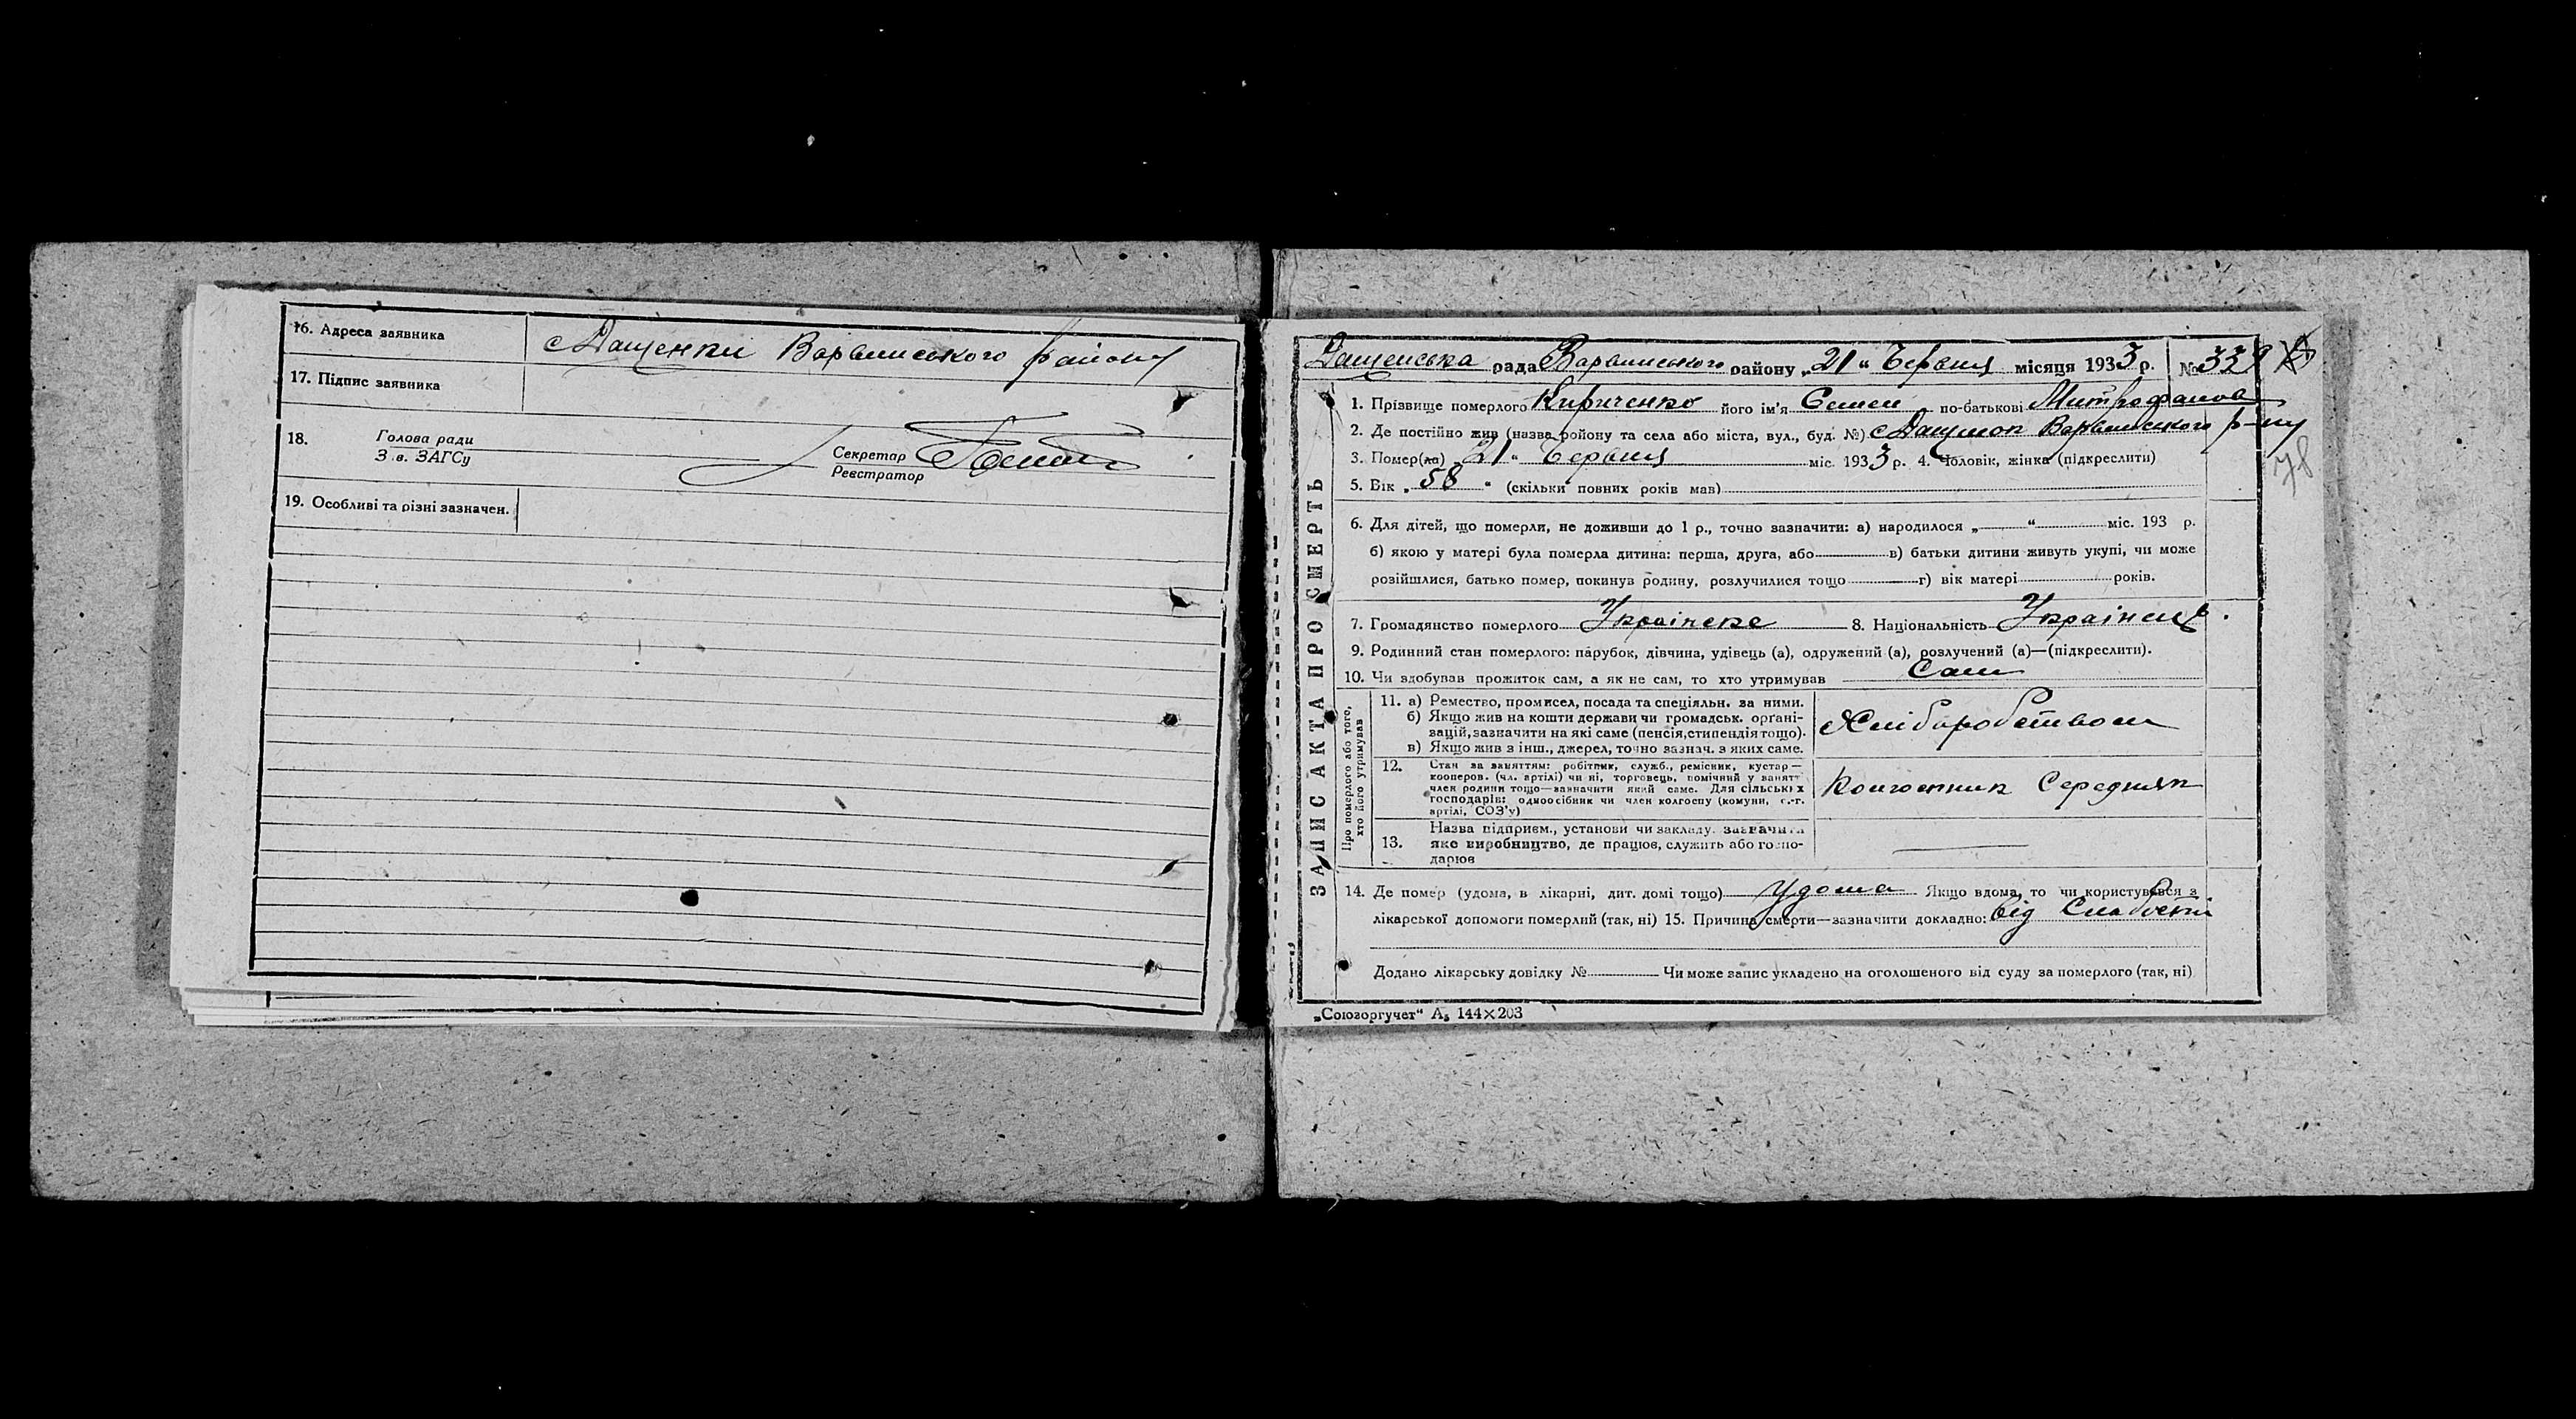 16. Адреса заявника с Дащенки Варвинського району
17. Підпис заявника
18. Голова ради
З в. ЗАГСу
Секретар
Реєстратор
19. Особливі та різні зазначен.
Дащенська рада Варвинського району „21“ Червня місяця 1933 р. №
1. Прізвище померлого Кириченко його ім'я Семен по-батькові Митрофанов
2. Де постійно жив (назва району та села або міста, вул., буд. №) с Дащенок Варвинського р-ну
78
3. Помер(ла) 21 “ Червня міс. 1933 р. 4. Чоловік, жінка (підкреслити)
5. Вік „ 58 “ (скільки повних років мав)
6. Для дітей, що померли, не доживши до 1 р., точно зазначити: а) народилося „ “ міс. 193 р.
б) якою у матері була померла дитина: перша, друга, або в) батьки дитини живуть укупі, чи може
розійшлися, батько помер, покинув родину, розлучилися тощо г) вік матері років.
7. Громадянство померлого Українське 8. Національність Українець.
9. Родинний стан померлого: парубок, дівчина, удівець (а), одружений (а), розлучений (а)—(підкреслити).
10. Чи здобував прожиток сам, а як не сам, то хто утримував Сам
ЗАПИС АКТА ПРО СМЕРТЬ
Про померлого або того,
хто його утримував
11. а) Ремество, промисел, посада та спеціяльн. за ними.
б) Якщо жив на кошти держави чи громадськ. органі-
зацій, зазначити на які саме (пенсія, стипендія тощо).
в) Якщо жив з інш., джерел, точно зазнач. з яких саме.
Хліборобством
12. Стан за заняттям: робітник, служб., ремісник, кустар—
кооперов. (чл. артілі) чи ні, торговець, помічний у занятт
член родини тощо—зазначити який саме. Для сільських
господарів: одноосібник чи член колгоспу (комуни, с.-г.
артілі, СОЗ'у)
Колгоспник Середняк
13. Назва підприєм., установи чи закладу. зазначити
яке виробництво, де працює, служить або госпо-
дарює
14. Де помер (удома, в лікарні, дит. домі тощо) Удома Якщо вдома, то чи користувався з
лікарської допомоги померлий (так, ні) 15. Причина смерти—зазначити докладно: Від Слабости
Додано лікарську довідку № Чи може запис укладено на оголошеного від суду за померлого (так, ні)
„Союзоргучет“ А₅ 144×203